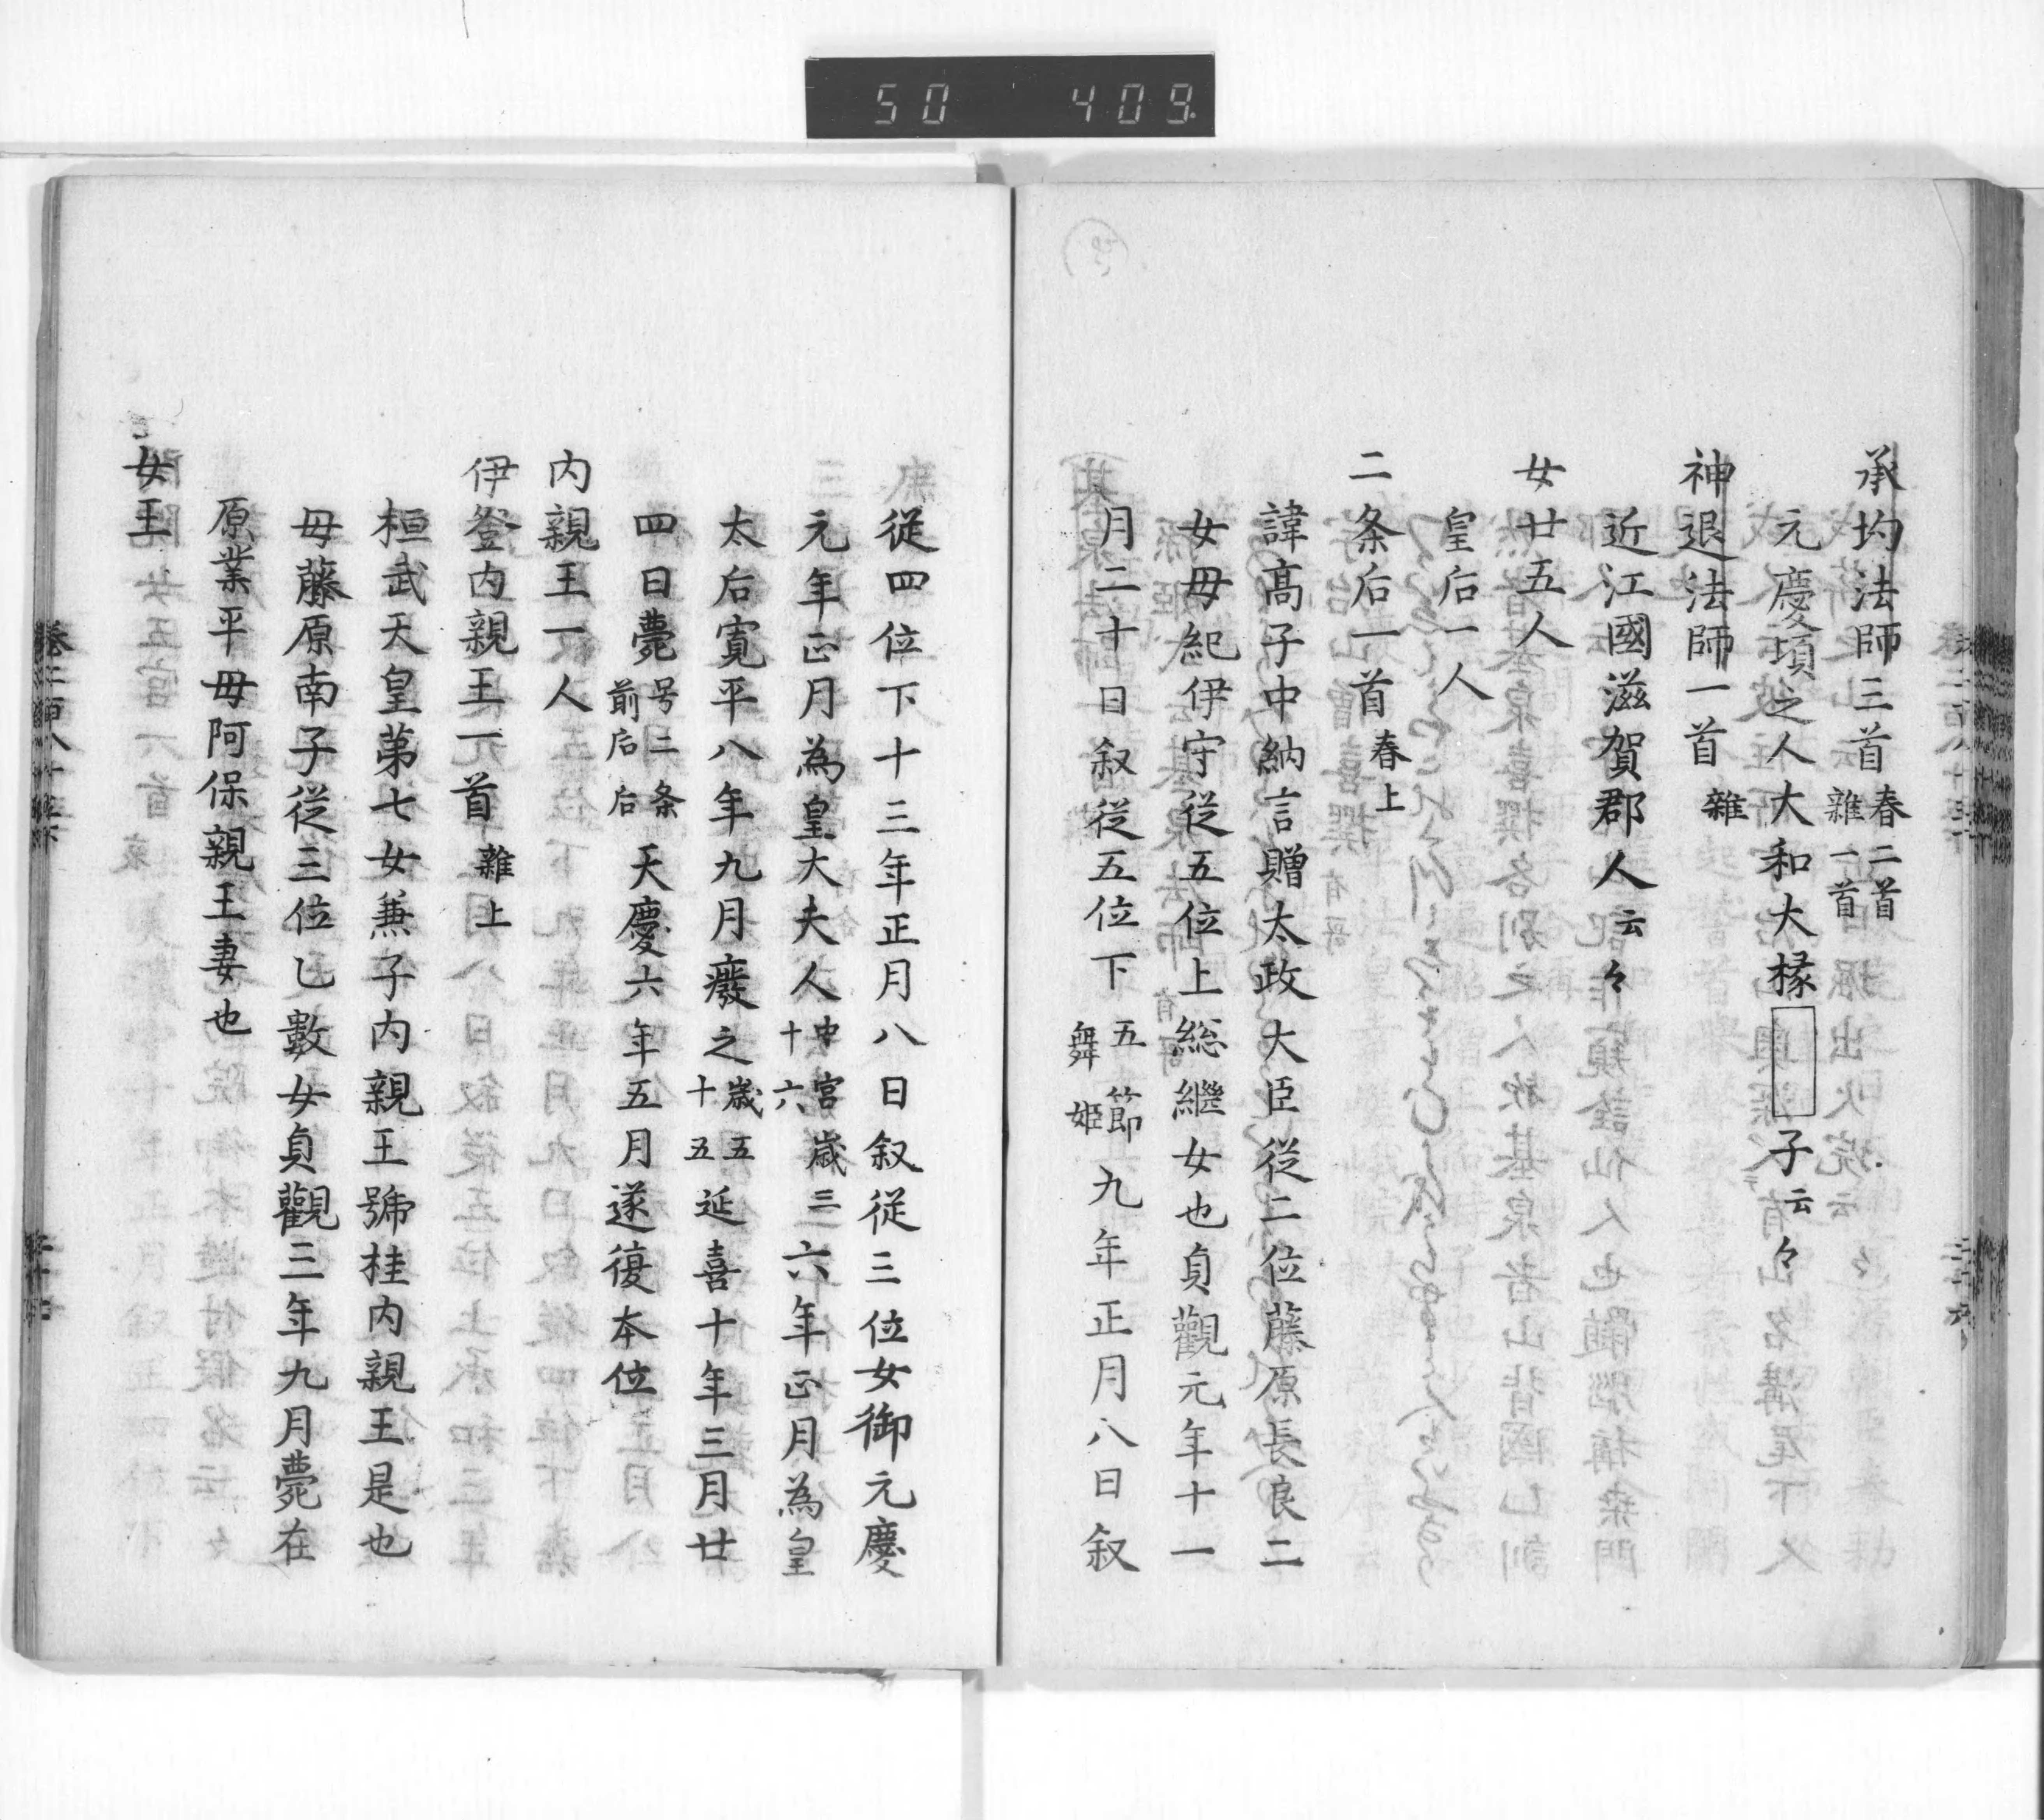 50 409
承均法師三首 春二首 雜一首
元慶項之人大和大椽 子云々
神退法師一首 雜
近江國滋賀郡人云々
女廿五人
皇后一人
二条后一首 春上
諱髙子中納言贈太政大臣従二位藤原長良二
女母紀伊守従五位上総継女也貞觀元年十一
月二十日叙従五位下 五節舞姫 九年正月八日叙
従四位下十三年正月八日叙従三位女御元慶
元年正月為皇大夫人 中宮歳三十六 六年正月為皇
太后寛平八年九月癈之 歳五十五 延喜十年三月廿
四日薨 号二条前后后 天慶六年五月遂復本位
内親王一人
伊登内親王一首 雜上
桓武天皇第七女兼子内親王號桂内親王是也
母藤原南子従三位乙數女貞觀三年九月薨在
原業平母阿保親王妻也
女王